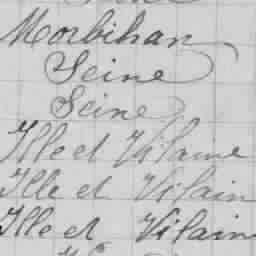 Morbihan
Seine
Seine
Ille et Vilaine
Ille et Vilain
Ille et Vilain